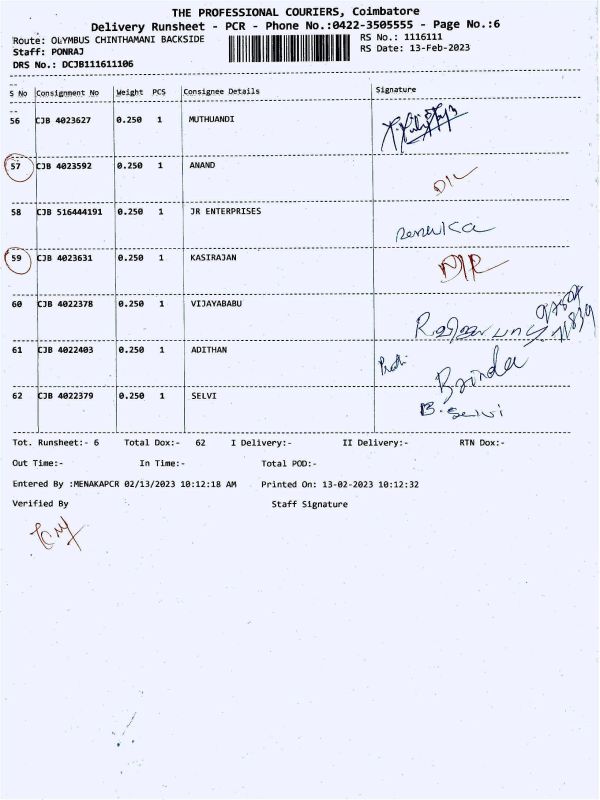 THE PROFESSIONAL COURIERS, Coimbatore
Delivery Runsheet - PCR - Phone No.:0422-3505555 - Page No.:6
Route: OLYMBUS CHINTHAMANI BACKSIDE RS No.: 1116111
Staff: PONRAJ RS Date: 13-Feb-2023
DRS No.: DCJB111611106
S No Consignment No Weight PCS Consignee Details Signature
56 CJB 4023627 0.250 1 MUTHUANDI
57 CJB 4023592 0.250 1 ANAND D/L
58 CJB 516444191 0.250 1 JR ENTERPRISES Renuka
59 CJB 4023631 0.250 1 KASIRAJAN
60 CJB 4022378 0.250 1 VIJAYABABU
61 CJB 4022403 0.250 1 ADITHAN Brinda
62 CJB 4022379 0.250 1 SELVI B. Selvi
Tot. Runsheet:- 6 Total Dox:- 62 I Delivery:- II Delivery:- RTN Dox:-
Out Time:- In Time:- Total POD:-
Entered By :MENAKAPCR 02/13/2023 10:12:18 AM Printed On: 13-02-2023 10:12:32
Verified By Staff Signature